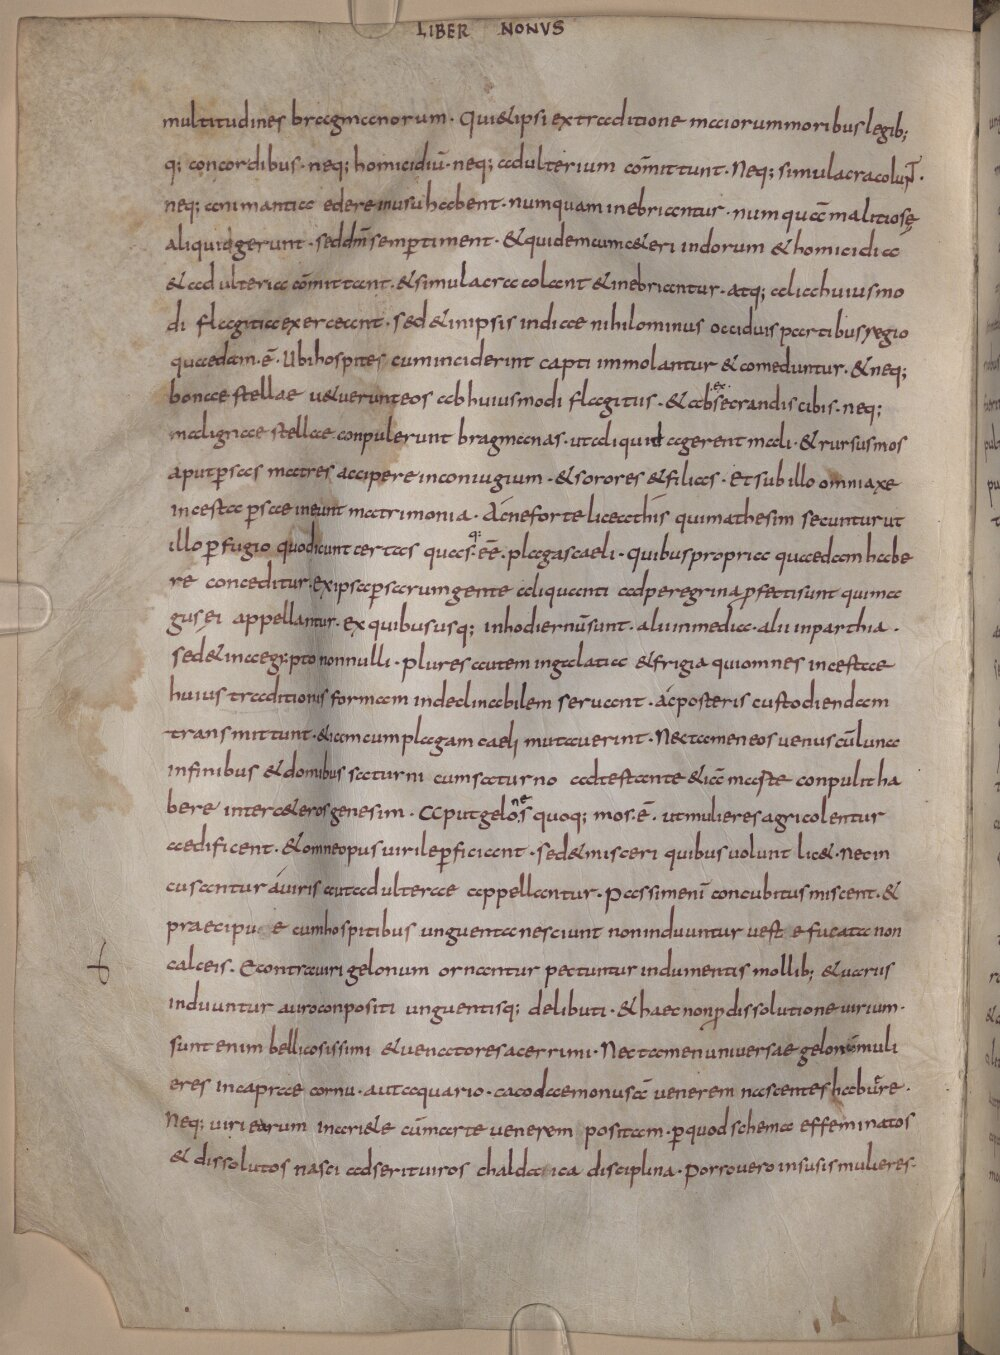 LIBER NONVS
multitudines bragmanorum · Qui&ipsi extraditione maiorummoribuslegib;
q; concordibus · neq; homicidiū · neq; adulterium cōmittunt · Neq; simulacracolunt ·
neq; animantia edere inusuhabent · numquam inebriantur · numquā malitiosę
aliquidgerunt · seddm̄ semp̄timent · &quidemcumc&eri indorum &homicidia
&adulteria cōmittant · &simulacra colant &inebriantur · atq; aliahuiusmo
di flagitiaexerceant · sed&inipsis indiae nihilominus occiduispartibusregio
quaedam · ē · Ubihospites cuminciderint capti immolantur &comeduntur · &neq;
bonae stellae u&uerunteos abhuiusmodi flagitiis · &ab exsecrandis cibis · neq;
malignae stellae conpulerunt bragmanas · utaliquid agerent mali · &rursusmos
aputp̄sas matres accipere inconiugium · &sorores &filias · Etsub illo omniaxe
incesta p̄sae ineunt matrimonia · Acneforte liceathis quimathesim secunturut
illo p̄fugio quodicunt certas quas q: · eē · plagascaeli · quibuspropria quaedam habe
re conceditur · Exipsap̄sarumgente aliquanti adperegrina p̄fectisunt quima
gusei appellantur · Ex quibususq; inhodiernūsunt · aliiinmedia · alii inparthia ·
sed&inaegypto nonnulli · plures autem ingalatia &frigia quiomnes incestae
huius traditionis formam indeclinabilem seruant · ac posteris custodiendam
transmittunt · &iamcumplagam caeli mutauerint · Nectameneos uenus cūluna
infinibus &domibus saturni cumsaturno adtestante &iā marte conpulit ha
bere interc&erosgenesim · Aput gelones quoq; mos · ē · utmulieresagricolentur
aedificent · &omneopusuirilep̄ficiant · sed&misceri quibus uolunt lic& · Necin
cusantur auiris autadulterae appellantur · Passimenī concubitus miscent · &
praecipue cumhospitibus unguentanesciunt noninduuntur ueste fucata non
calceis · Econtrauiri gelonum ornantur pectuntur indumentis mollib; &uarus
induuntur auroconpositi unguentisq; delibuti · &haec nonp̄dissolutione uirium ·
sunt enim bellicosissimi &uenatoresacerrimi · Nectamenuniuersae gelonūmuli
eres incaprae cornu · autaquario · cacodaemonusā uenerem nascenteshabuēre ·
Neq; uiri earum inari&e cūmarte uenerem positam · p̄quodschema effeminatos
& dissolutos nasci adserituiros chaldaica disciplina · Porrouero insusismulieres ·